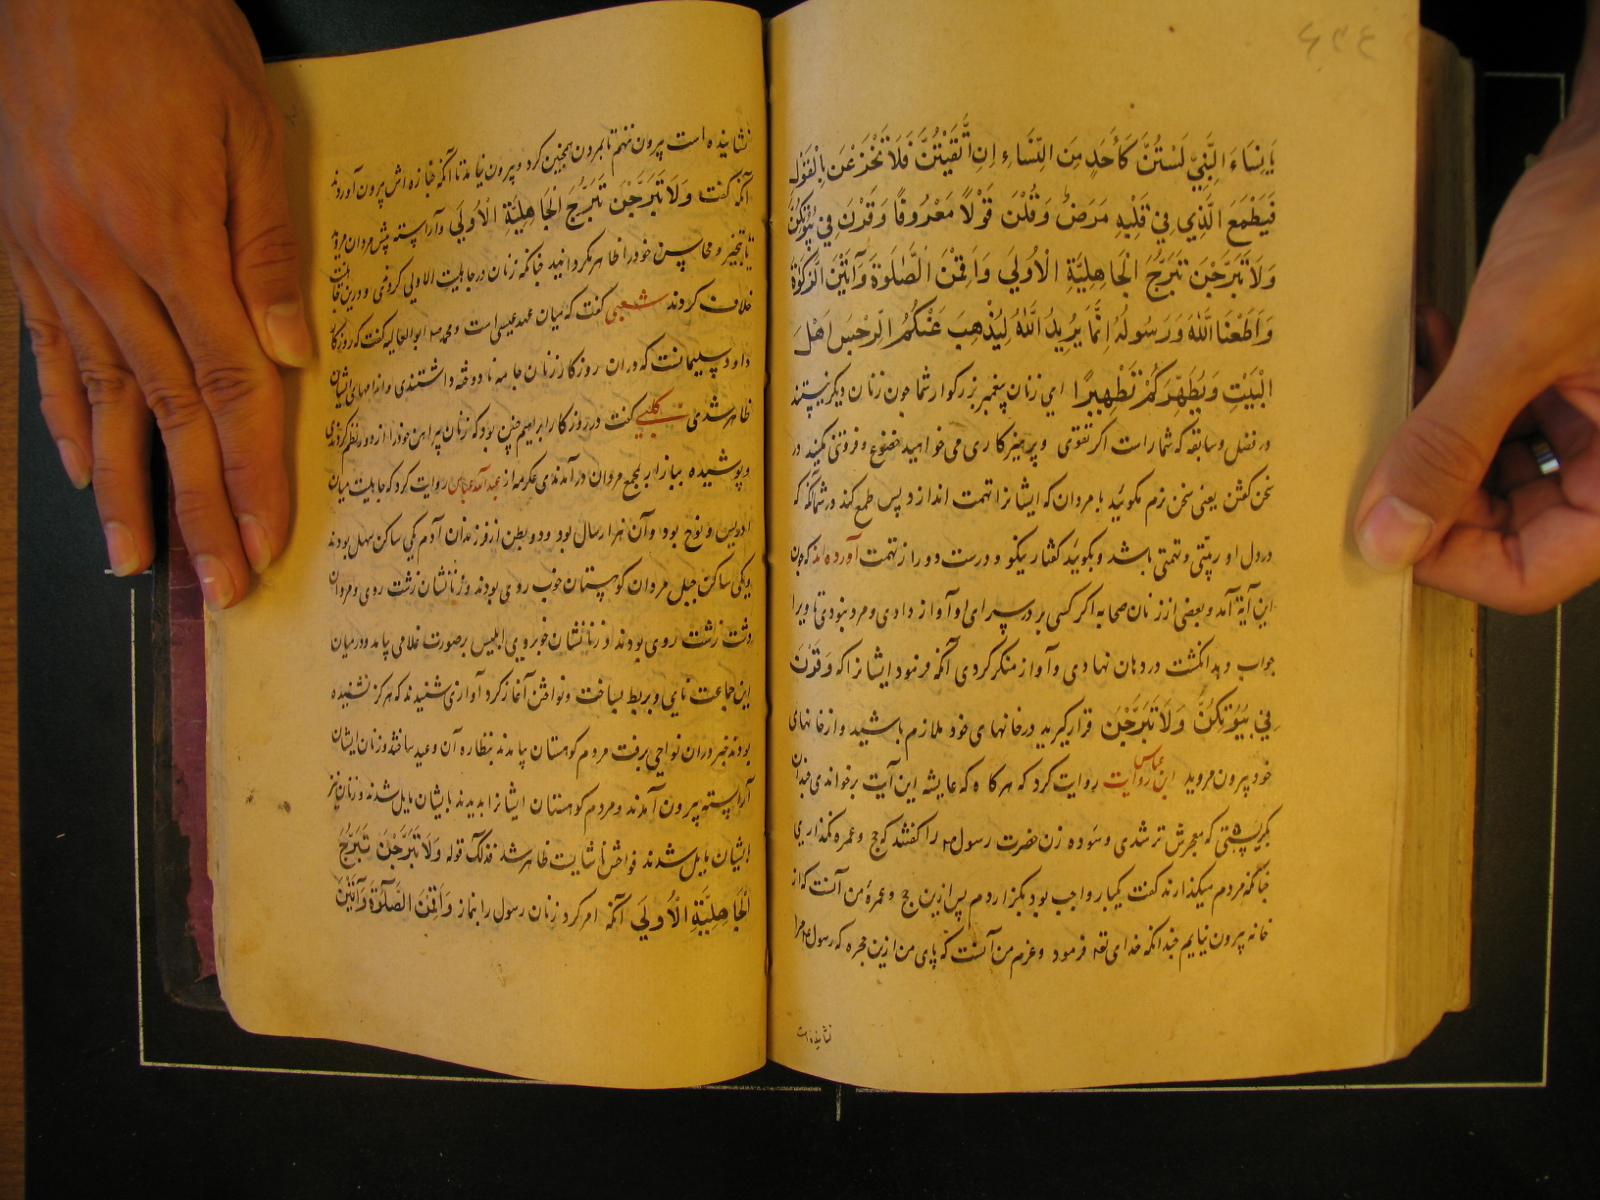 يَا نِسَاءَ النَّبِيِّ لَسْتُنَّ كَأَحَدٍ مِنَ النِّسَاءِ اِنِ اتَّقَيْتُنَّ فَلَا تَخْضَعْنَ بِالْقَوْلِ
فَيَطْمَعَ الَّذِي فِي قَلْبِهِ مَرَضٌ وَقُلْنَ قَوْلًا مَعْرُوفًا وَقَرْنَ فِي بُيُوتِكُنَّ
وَلَا تَبَرَّجْنَ تَبَرُّجَ الْجَاهِلِيَّةِ الْأُولَى وَاَقِمْنَ الصَّلٰوةَ وَآتِينَ الزَّكٰوةَ
وَاَطِعْنَ اللّٰهَ وَرَسُولَهُ اِنَّمَا يُرِيدُ اللّٰهُ لِيُذْهِبَ عَنْكُمُ الرِّجْسَ اَهْلَ
الْبَيْتِ وَيُطَهِّرَكُمْ تَطْهِيرًا ای زنان پیغمبر بزرکوار شما چون زنان دیکر نیستند
در فضل و سابقه که شما راست اکر تقوی و پرهیزکاری می خواهید خضوع و فروتنی مکنید در
سخن کفتن یعنی سخن نرم مکوئید با مردان که ایشانرا تهمت اندازد پس طمع کند در شما آنکه که
در دل او ریبتی و تهمتی باشد و بکوئید کفتار نیکو و درست و دور از تهمت آورده اند که چون
این آیة آمد و بعضی از زنان صحابه اکر کسی بر در سرای او آواز دادی و مرد نبودی تا ویرا
جواب دهد انکشت در دهان نهادی و آواز منکر کردی آنکه فرمود ایشانرا که وَقَرْنَ
فِي بُيُوتِكُنَّ وَلَا تَبَرَّجْنَ قرار کیرید در خانهای خود ملازم باشید و از خانهای
خود بیرون مروید ابن عباس روایت روایت کرد که هرکاه که عایشه این آیت برخواندی چندان
بکریستی که معجرش تر شدی و سوده زن حضرت رسول را کفتند که حج و عمره نکذاری
چنانکه مردم میکذارند کفت یکبار واجب بود بکزاردم پس ازین حج و عمرۀ من آنست که از
خانه بیرون نیایم چندانکه خدای تعه فرمود و عزم من آنست که پای من ازین حجره که رسول مرا
نشانیده است
نشانیده است بیرون ننهم تا بمردن همچنین کرد و بیرون نیامد تا آنکه جنازه اش بیرون آوردند
آنکه کفت وَلَا تَبَرَّجْنَ تَبَرُّجَ الْجَاهِلِيَّةِ الْأُولَى و آراسته پیش مردان مروید
تا تبختر و محاسن خود را ظاهر مکردانید چنانکه زنان در جاهلیت الاولی کردندی و درین جاهلیت
خلاف کردند شعبی کفت که میان عهد عیسی است و محمد ابوالعالیه کفت که روزکار
داود و سلیمانست که در آن روزکار زنان جامه نا دوخته داشتندی و اندامهای ایشان
ظاهر شدی کلبی کفت در روزکار ابراهیم چنین بود که زنان پیراهن خود را از دور نظم کردندی
و پوشیده ببازار بمجمع مردان درآمدندی عکرمه از عبدالله عباس روایت کرد که جاهلیت میان
ادریس و نوح بود و آن هزار سال بود و دو بطن از فرزندان آدم یکی ساکن سهل بودند
و یکی ساکن جبل مردان کوهستان خوب روی بودند و زنانشان زشت روی و مردان
دشت زشت روی بودند و زنانشان خوبروی ابلیس بر صورت غلامی بیامد و در میان
این جماعت نایی و بربط بساخت و نواختن آغاز کرد آوازی شنیدند که هرکز نشنیده
بودند خبر در آن نواحی برفت مردم کوهستان بیامدند بنظاره آن و عید ساختند و زنان ایشان
آراسته بیرون آمدند و مردم کوهستان ایشانرا بدیدند بایشان مایل شدند و زنان نیز
بایشان مایل شدند فواحش ناشایست ظاهر شد فذلک قوله وَلَا تَبَرَّجْنَ تَبَرُّجَ
الْجَاهِلِيَّةِ الْأُولَى آنکه امر کرد زنان رسول را بنماز وَاَقِمْنَ الصَّلٰوةَ وَآتِينَ